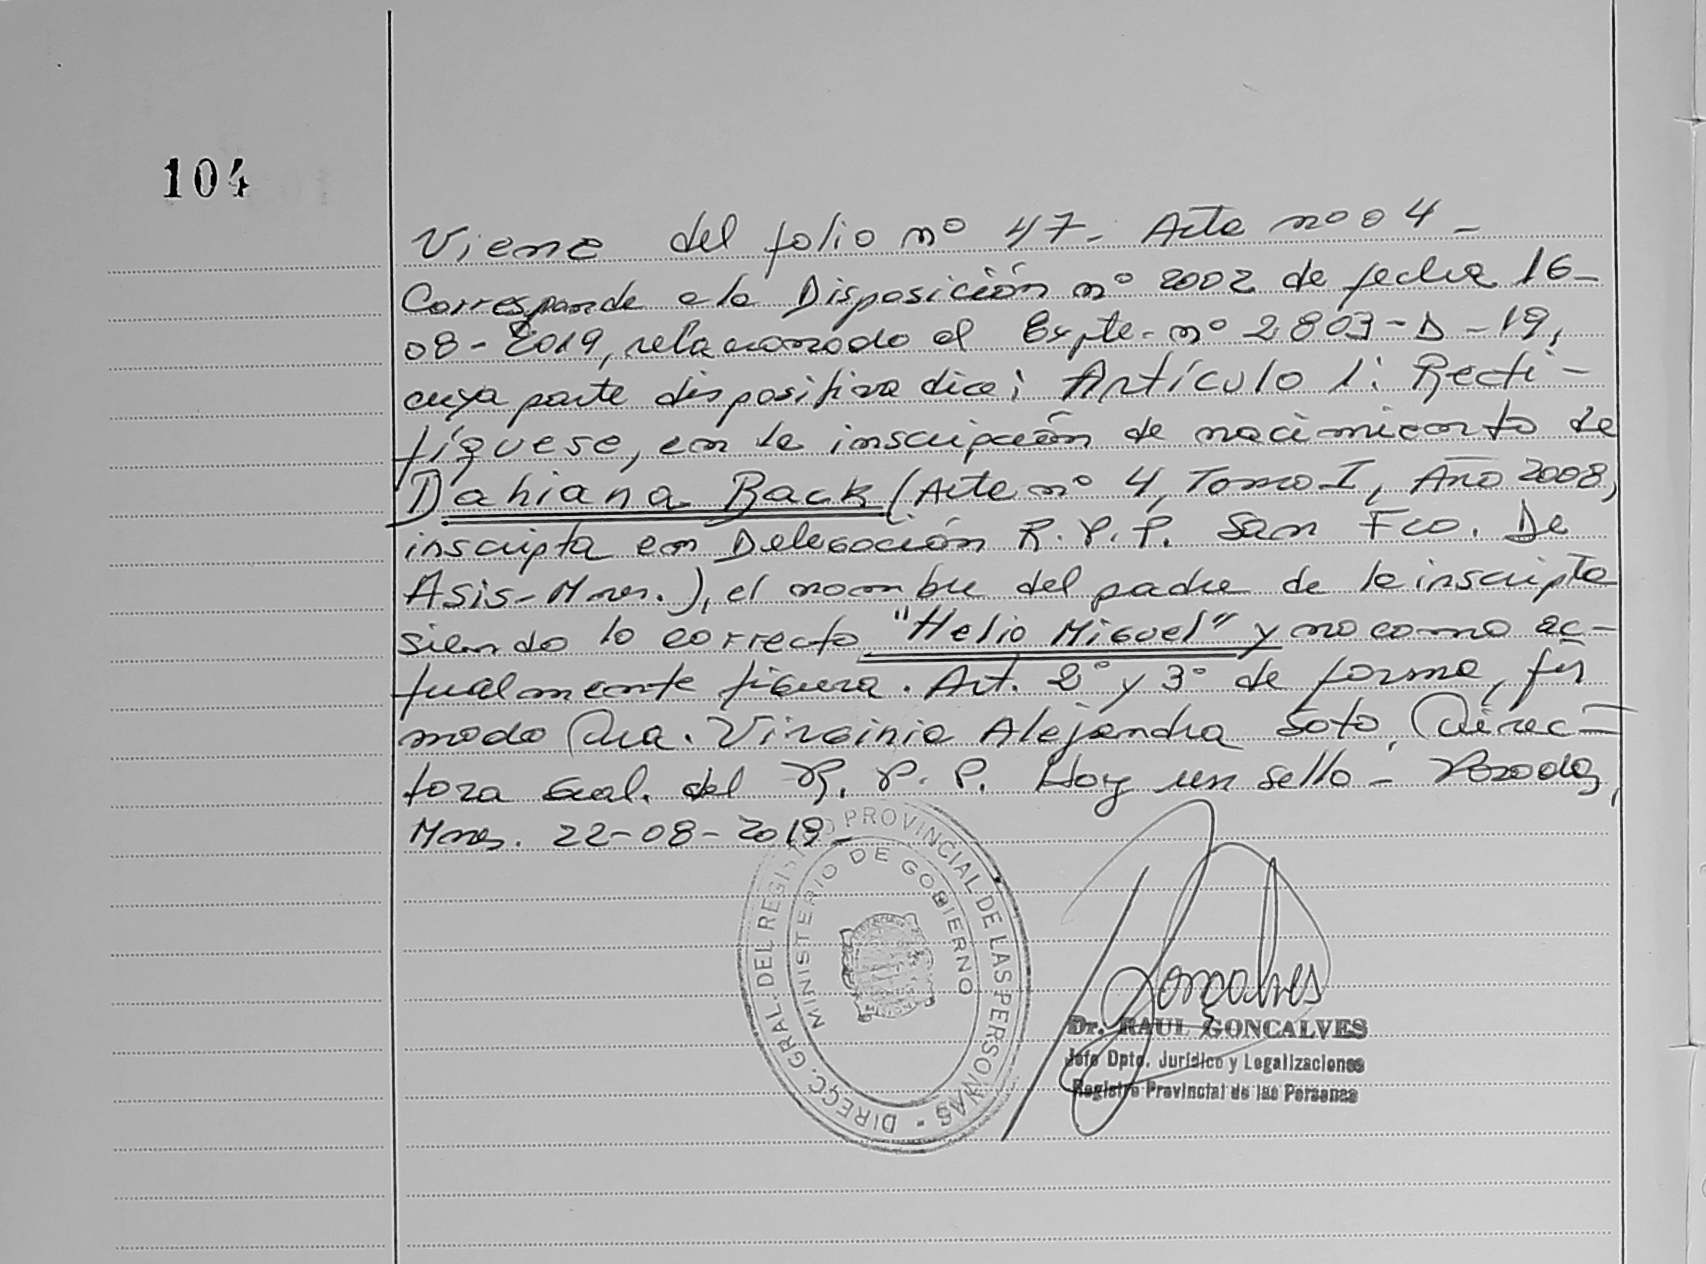 104
Viene del folio nº 47- Acta nº 04-
Corresponde a la Disposición nº 2002 de fecha 16-
08-2019, relacionado al Expte. nº 2803-D-19,
cuya parte dispositiva dice: Artículo 1: Recti-
fíquese, en la inscripción de nacimiento de
Dahiana Back (Acta nº 4, Tomo I, Año 2008,
inscripta en Delegación R.P.P. San Fco. De
Asis-Mnes.), el nombre del padre de la inscripta
siendo lo correcto "Helio Miguel" y no como ac-
tualmente figura. Art. 2º y 3º de forma, fir
mado Dra. Virginia Alejandra Soto, Direc-
tora Gral. del R.P.P. Hay un sello- Posadas,
Mnes. 22-08-2019-
DIREC. GRAL. DEL REGISTRO PROVINCIAL DE LAS PERSONAS -
MINISTERIO DE GOBIERNO
Gonçalves
Dr. RAUL GONCALVES
Jefe Dpto. Jurídico y Legalizaciones
Registro Provincial de las Personas